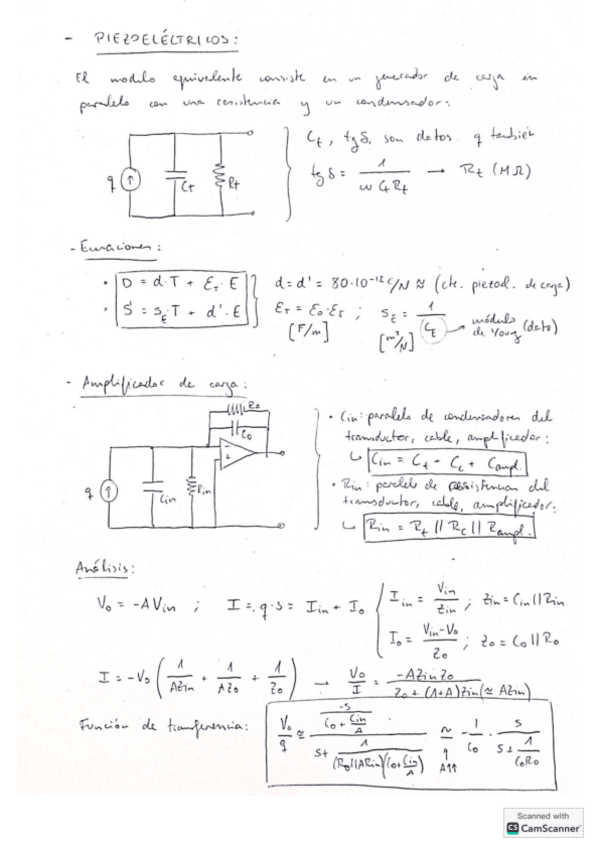 - PIEZOELÉCTRICOS:
El modulo equivalente consiste en un generador de carga en
paralelo con una resistencia y un condensador:
q Ct Rt
Ct, tg δ, son datos q también
tg δ = 1 / (ω Ct Rt) → Rt (MΩ)
- Ecuaciones:
• D = d·T + ε_T·E
• S = s_E·T + d'·E
d = d' = 80·10⁻¹² C/N ≈ (cte. piezoel. de carga)
ε_T = ε_0·ε_r ; s_E = 1 / C_E → módulo de Young (dato)
[F/m] [m²/N]
- Amplificador de carga:
R0
C0
q Cin Rin
• Cin: paralelo de condensadores del
transductor, cable, amplificador:
↳ Cin = Ct + Cc + Campl.
• Rin: paralelo de resistencias del
transductor, cable, amplificador:
↳ Rin = Rt || Rc || Rampl.
Análisis:
V0 = -A Vin ; I = q·s = Iin + I0
Iin = Vin / Zin ; Zin = Cin || Rin
I0 = (Vin - V0) / Z0 ; Z0 = C0 || R0
I = -V0 (1/(A Zin) + 1/(A Z0) + 1/Z0) → V0/I = -A Zin Z0 / (Z0 + (1+A) Zin (≈ A Zin))
Función de transferencia:
V0/q ≈ (-s / (C0 + Cin/A)) / (s + 1 / ((R0 || A Rin)(C0 + Cin/A))) ≈ -1/C0 · s / (s + 1/(C0 R0))
A↑↑
Scanned with
CS CamScanner